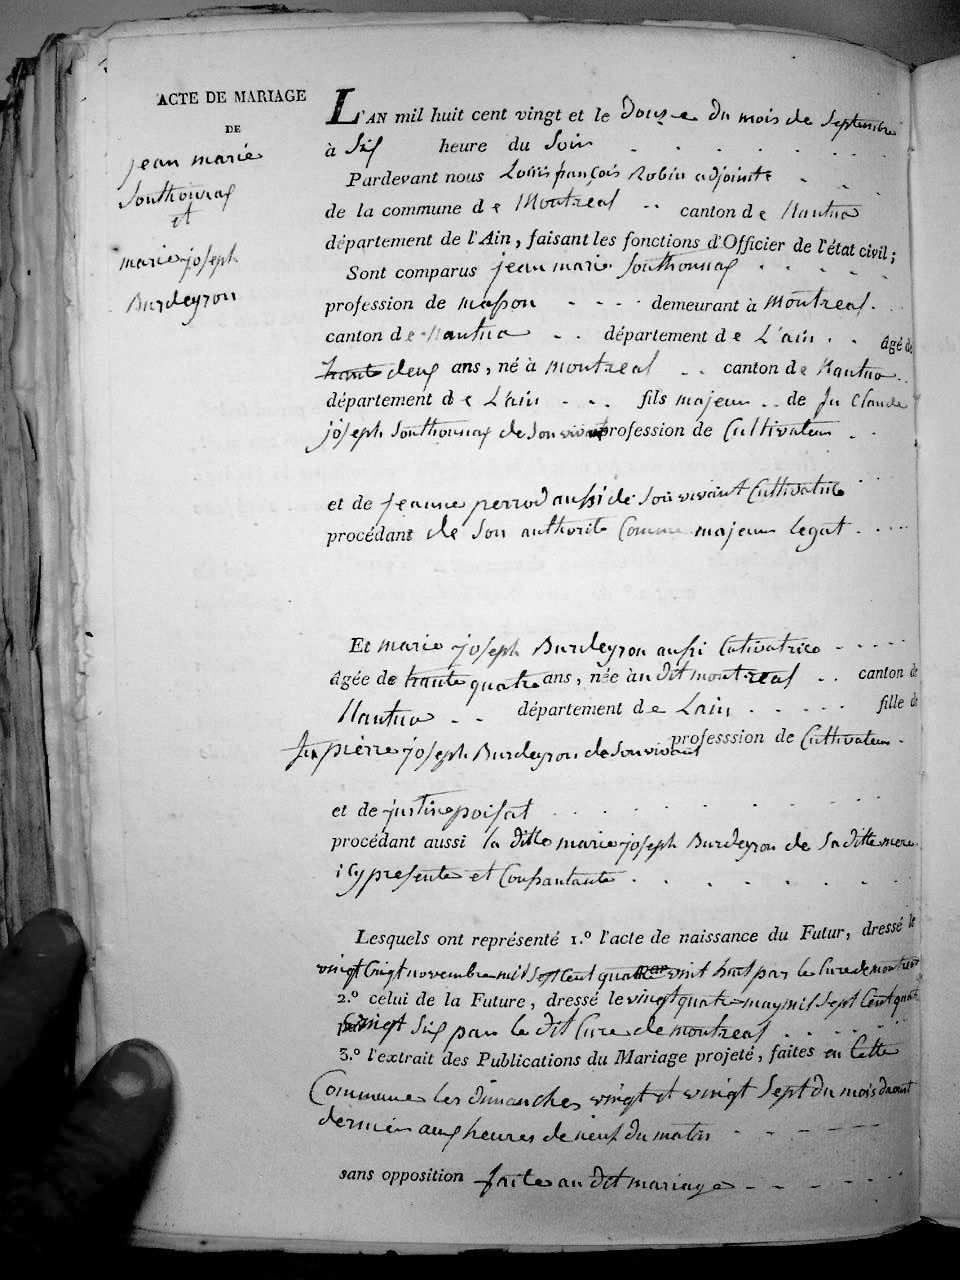 ACTE DE MARIAGE
DE
jean marie
Southonnax
et
marie joseph
Burdeyron
L'AN mil huit cent vingt et le Douze du mois de Septembre
à Six heure du Soir
Pardevant nous Louis françois Robin adjointe
de la commune de Montreal canton de Nantua
département de l'Ain, faisant les fonctions d'Officier de l'état civil;
Sont comparus jean marie Southonnax
profession de masson demeurant à Montreal
canton de Nantua département de L'ain âgé de
trante deux ans, né à Montreal canton de Nantua
département de L'ain fils majeur de fu Claude
joseph Southonnax de son vivant profession de Cultivateur
et de jeanne perrod aussi de Son vivant Cultivatrice
procédant de Son authorité Comme majeur legat
Et marie joseph Burdeyron aussi Cutivatrice
âgée de trante quatre ans, née au dit montreal canton de
Nantua département de Lain fille de
fu pierre joseph Burdeyron de son vivant professsion de Cultivateur
et de justine poisat
procédant aussi la ditte marie joseph Burdeyron de Sa ditte mere
icy presente et Consantante
Lesquels ont représenté 1.º l'acte de naissance du Futur, dressé le
vingt Cinq novembre mil Sept Cent quatre vint huit par le Cure de montreal
2.º celui de la Future, dressé le vingt quatre may mil Sept Cent quatre
vingt Six par le dit Cure de montreal
3.º l'extrait des Publications du Mariage projeté, faites en Cette
Commune les dimanches vingt et vingt Sept du mois daout
dernier aux heures de neuf du matin
sans opposition faite au dit mariage